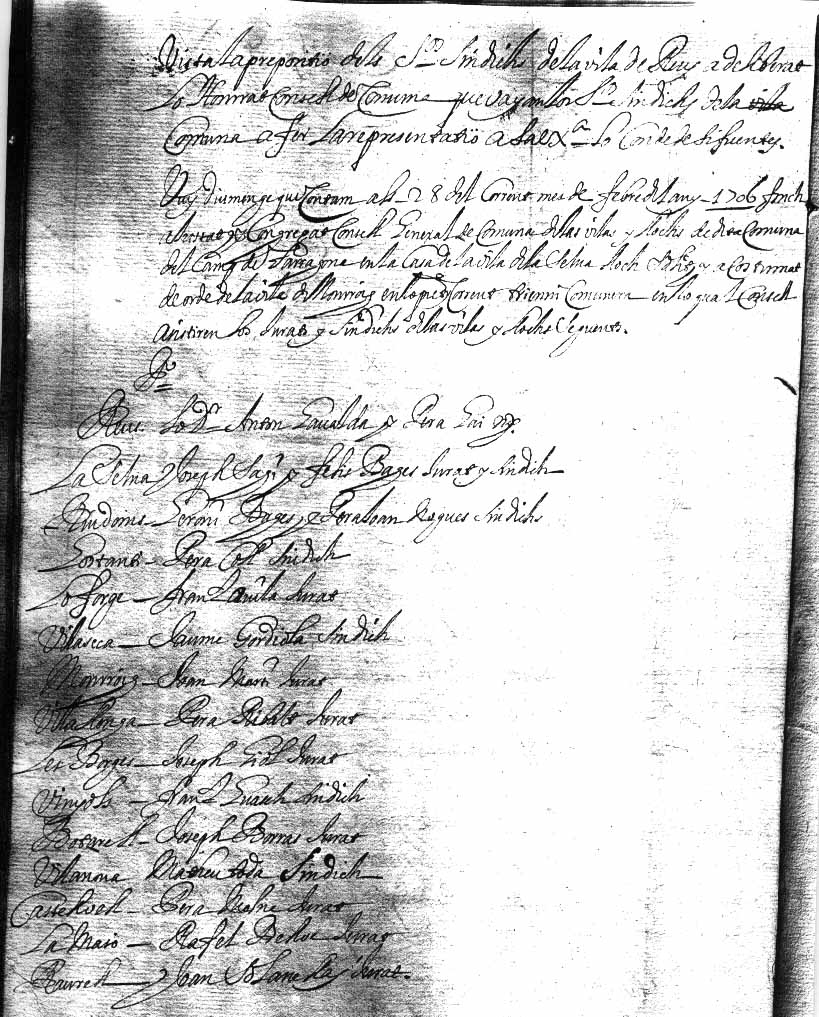 Vista la propositio dels Srs Sindichs de la vila de Reus a deliberat
Lo Honrat Consell de Comuna que vajan los Srs Sindichs de la vila
Comuna a fer la representatio a sa exa lo Conde de Sifuentes.
Vuy diumenge que Contam als 28 del Corrent mes de febre del any 1706 fonch
a juntat y Congregat Consell General de Comuna de las vilas y llochs de dita Comuna
del Camp de Tarragona en la Casa de la vila de la Selva lloch y acostumat
de orde de la vila de Monroig en lo pnt Corrent trienni Comunera en lo qual Consell
asistiren los Jurats y Sindichs de las vilas y llochs seguents.
Po
Reus. Lo Dr Anton Gavalda y Pera
La Selva Joseph y Felis Bages Jurat y Sindich
Riudoms Geroni Bages y Pera Joan Nogues Sindichs
Constanti - Pera Coll Sindich
Lo Forge - Jurat
Vilaseca - Jaume Gordiola Sindich
Monroig - Joan Marti Jurat
Villalonga - Pera Ribilt Jurat
Les Borges - Joseph Jurat
Vinyols - Franz Guasch Sindich
Botarell - Joseph Borras Jurat
Vilanova Matheu toda Sindich
Castellvell - Pera Jurat
La Maso - Rafel Jurat
Raurell - Joan Jurat.